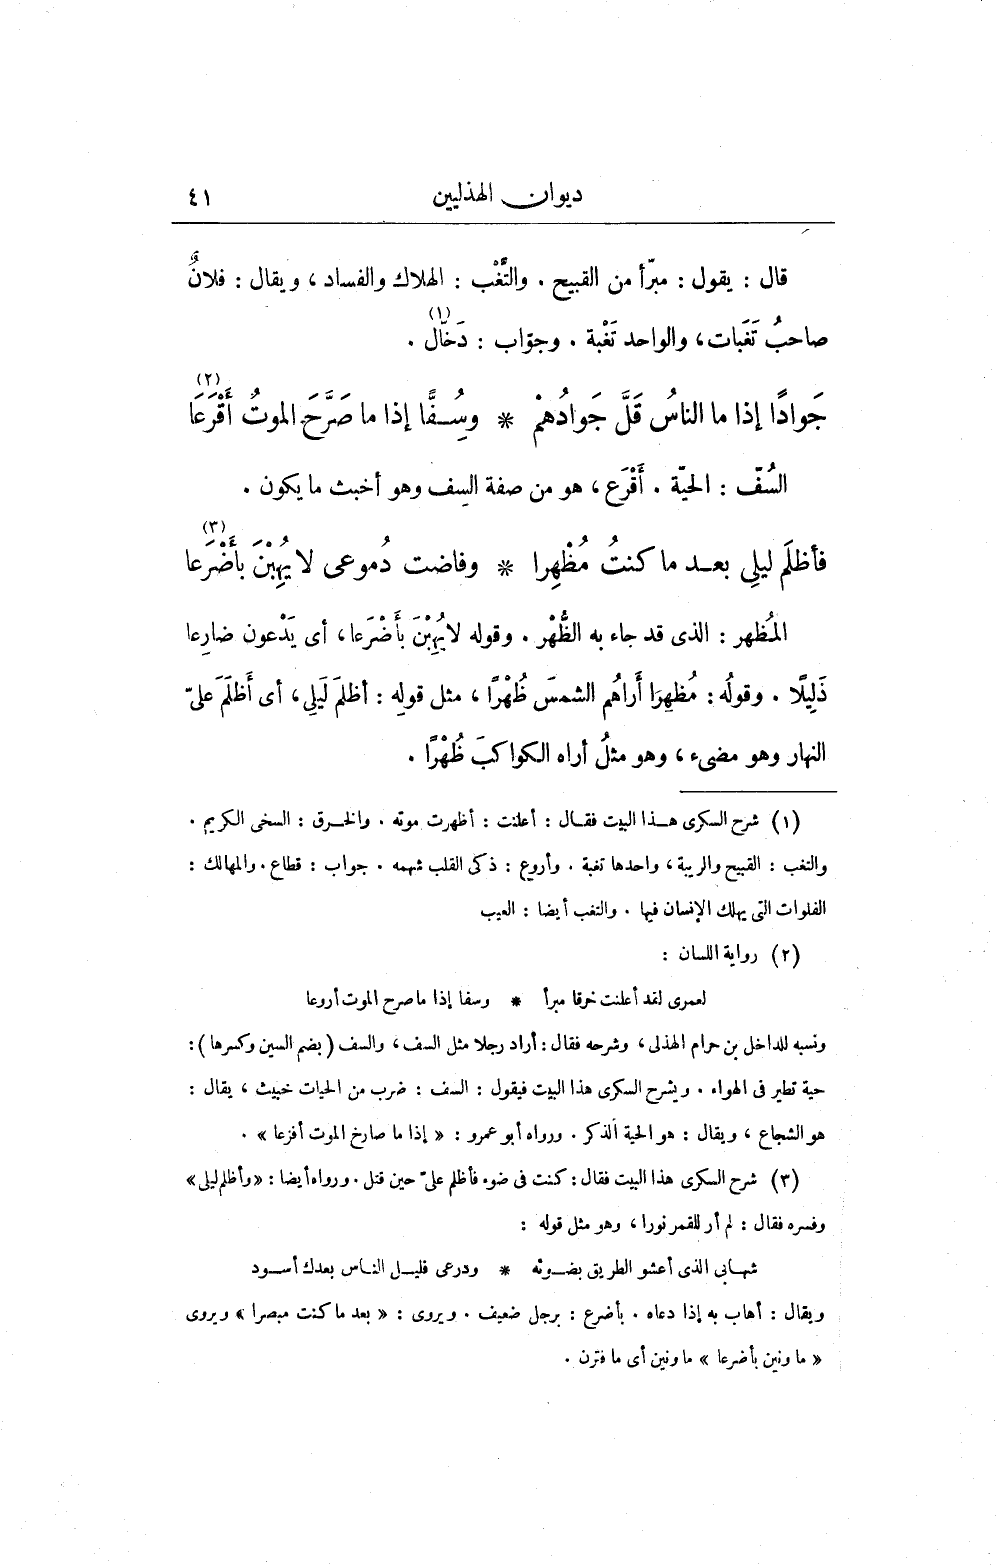 ديوان الهذليين ٤١
قال : يقول : مبرّأ من القبيح . والتَّغْب : الهلاك والفساد ، ويقال : فلانٌ
صاحبُ تَغَبات، والواحد تَغْبة . وجوّاب : دَخّال (١) .
جَوادًا إذا ما الناسُ قَلَّ جَوادُهمْ * وسُِفًّا إذا ما صَرَّحَ الموتُ أَقْرَعَا (٢)
السُّفّ : الحيّة . أَقْرَع ، هو من صفة السِف وهو أخبث ما يكون .
فأظلَم ليلِي بعد ما كنتُ مُظْهِرا * وفاضت دُموعى لا يُهِبْنَ بأَضْرَعَا (٣)
المُظهر : الذى قد جاء به الظُّهْر . وقوله لا يُهِبْنَ بأَضْرَعا، أى يَدْعون ضارِعا
ذَلِيلًا . وقولُه : مُظهِرَا أَراهُم الشمسَ ظُهْرًا ، مثل قولِه : أظلمَ لَيلِى ، أى أَظلَمَ علىّ
النهار وهو مضىء ، وهو مثلُ أراه الكواكبَ ظُهْرًا .
(١) شرح السكرى هذا البيت فقال : أعلنت : أظهرت موته . والخرق : السخى الكريم .
والتغب : القبيح والريبة ، واحدها تغبة . وأروع : ذكى القلب شهمه . جواب : قطاع . والمهالك :
الفلوات التى يهلك الإنسان فيها . والتغب أيضا : العيب
(٢) رواية اللسان :
لعمرى لقد أعلنت خرقا مبرأ * وسفا إذا ما صرح الموت أروعا
ونسبه للداخل بن حرام الهذلى ، وشرحه فقال : أراد رجلا مثل السف ، والسف (بضم السين وكسرها) :
حية تطير فى الهواء . ويشرح السكرى هذا البيت فيقول : السف : ضرب من الحيات خبيث ، يقال :
هو الشجاع ، ويقال : هو الحية الذكر . ورواه أبو عمرو : « إذا ما صارخ الموت أفزعا » .
(٣) شرح السكرى هذا البيت فقال : كنت فى ضوء فأظلم علىّ حين قتل . ورواه أيضا : «وأظلم ليلى»
وفسره فقال : لم أر للقمر نورا ، وهو مثل قوله :
شهابى الذى أعشو الطريق بضوئه * ودرعى فليل الناس بعدك أسود
ويقال : أهاب به إذا دعاه . بأضرع : برجل ضعيف . ويروى : « بعد ما كنت مبصرا » ويروى
« ما ونين بأضرعا » ما ونين أى ما فترن .